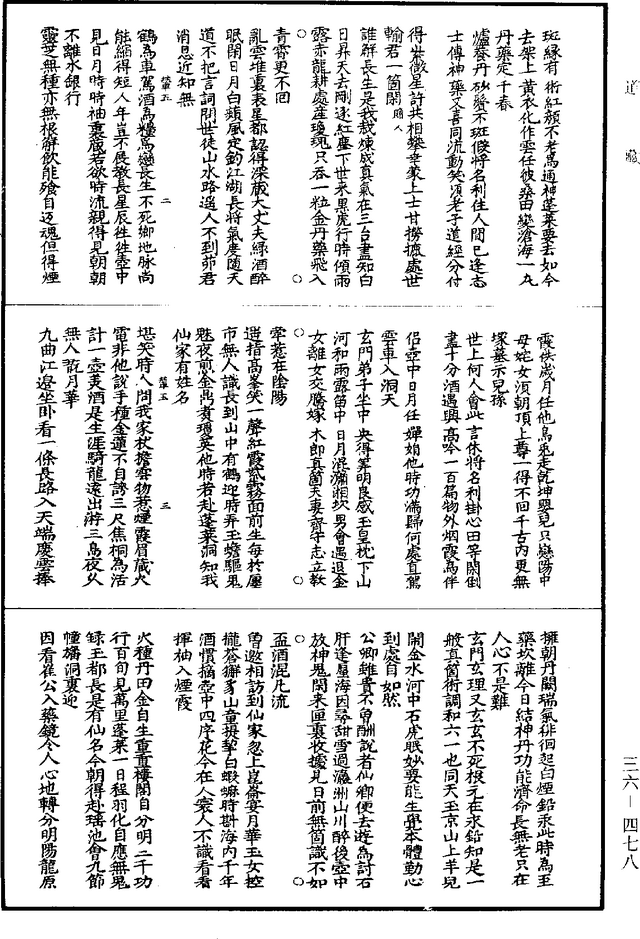 道藏
斑緑有術紅顔不老爲通神蓬萊要去如今
去架上黃衣化作雲任彼桑田變滄海一丸
丹藥定千春
爐養丹砂鬢不斑假將名利住人間已逢志
士傳神藥又喜同流動笑顔老子道經分付
得少微星許共相攀幸蒙上士甘撈摝處世
輸君一箇閑贈人
誰解長生是我哉煉成真氣在三台盡知白
日昇天去剛逐紅塵下世來黑虎行時傾雨
露赤龍耕處産瓊瑰只吞一粒金丹藥飛入
青霄更不回
亂雲堆裏表星都認得深藏大丈夫緑酒醉
眠閑日月白蘋風定釣江湖長將氣度隨天
道不把言詞問世徒山水路遥人不到茆君
消息近知無
鶴爲車駕酒爲糧爲戀長生不死鄉地脉尚
能縮得短人年豈不展教長星辰往往壺中
見日月時時袖裏藏若欲時流親得見朝朝
不離水銀行
靈芝無種亦無根解飲能飡自返魂但得煙
霞供歲月任他烏兎走乾坤嬰兒只戀陽中
母姹女須朝頂上尊一得不回千古内更無
塚墓示兒孫
世上何人會此言休將名利掛心田等閑倒
盡十分酒遇興高吟一百篇物外烟霞爲伴
侣壺中日月任嬋娟他時功滿歸何處直駕
雲車入洞天
玄門弟子坐中央得筭明良感玉皇枕下山
河和雨露笛中日月混瀟湘坎男會遇退金
女離女交騰嫁木郎真箇夫妻齊守志立教
牽惹在陰陽
遥指高峯笑一聲紅霞紫霧面前生每於廛
市無人識長到山中有鶴迎時弄玉蟾驅鬼
魅夜煎金鼎煮瓊英他時若赴蓬萊洞知我
仙家有姓名
堪笑時人問我家杖擔雲物惹煙霞眉藏火
電非他說手種金蓮不自誇三尺焦桐爲活
計一壺美酒是生涯騎龍遠出游三島夜久
無人翫月華
九曲江邊坐卧看一條長路入天端慶雲捧
擁朝丹闕瑞氣徘徊起白煙鉛汞此時爲至
藥坎離今日結神丹功能濟命長無老只在
人心不是難
玄門玄理又玄玄不死根元在汞鉛知是一
般真箇術調和六一也同天玉京山上羊兒
鬧金水河中石虎眠妙要能生覺本體勤心
到處自如然
公卿雖貴不曾酬說著仙鄉便去遊爲討石
肝逢蜃海因尋甜雪過瀛洲山川醉後壺中
放神鬼閑來匣裏收據見目前無箇識不如
盃酒混凡流
曾邀相訪到仙家忽上崑崙宴月華玉女控
攏蒼獬豸山童提挈白蝦蟆時斟海内千年
酒慣摘壺中四序花今在人寰人不識看看
揮袖入煙霞
火種丹田金自生重重樓閣自分明三千功
行百旬見萬里蓬萊一日程羽化自應無鬼
録玉都長是有仙名今朝得赴瑶池會九節
幢旛洞裏迎
因看崔公入藥鏡令人心地轉分明陽龍原
華五
二
華五
三
三六—四七八